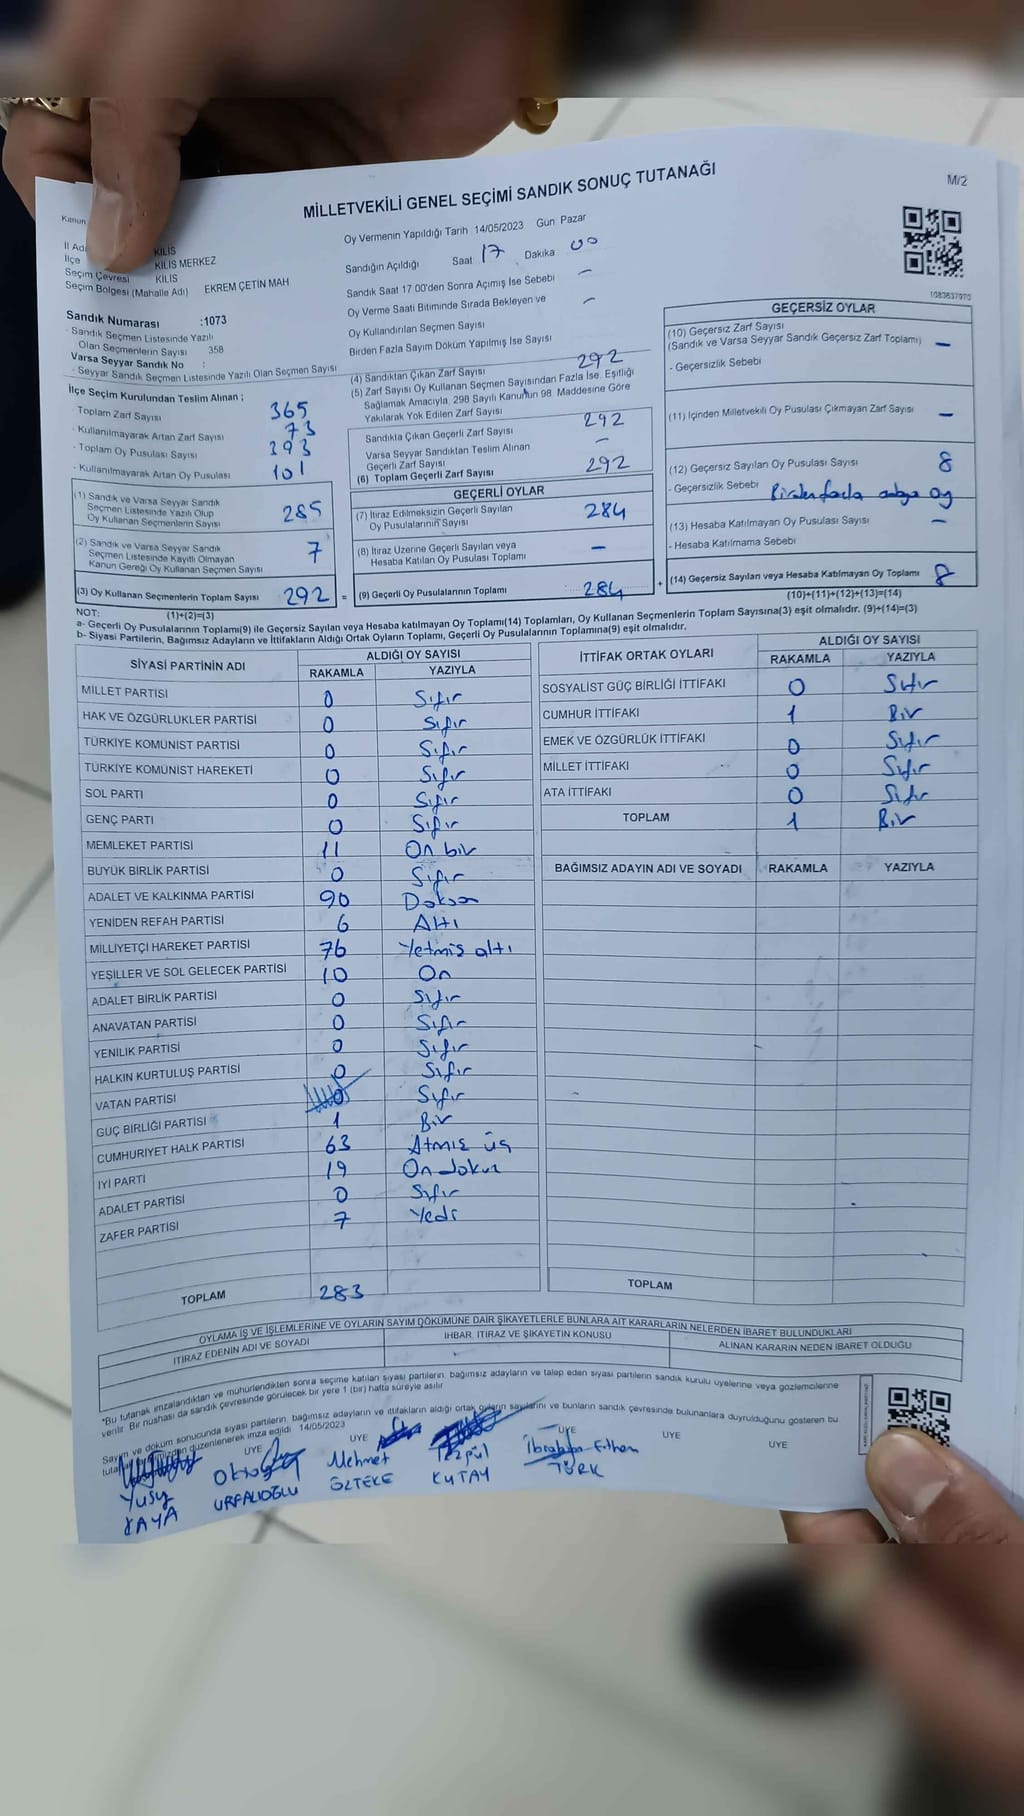 MİLLETVEKİLİ GENEL SEÇİMİ SANDIK SONUÇ TUTANAĞI
M/2
Kanun
İl Adı KİLİS
İlçe KİLİS MERKEZ
Seçim Çevresi KİLİS
Seçim Bölgesi (Mahalle Adı) EKREM ÇETİN MAH
Sandık Numarası :1073
- Sandık Seçmen Listesinde Yazılı
Olan Seçmenlerin Sayısı 358
Varsa Seyyar Sandık No :
- Seyyar Sandık Seçmen Listesinde Yazılı Olan Seçmen Sayısı
Oy Vermenin Yapıldığı Tarih 14/05/2023 Gün Pazar
Sandığın Açıldığı Saat 17 Dakika 00
Sandık Saat 17 00'den Sonra Açımış İse Sebebi –
Oy Verme Saati Bitiminde Sırada Bekleyen ve
Oy Kullandırılan Seçmen Sayısı –
Birden Fazla Sayım Döküm Yapılmış İse Sayısı
İlçe Seçim Kurulundan Teslim Alınan ;
- Toplam Zarf Sayısı 365
- Kullanılmayarak Artan Zarf Sayısı 73
- Toplam Oy Pusulası Sayısı 393
- Kullanılmayarak Artan Oy Pusulası 101
(1) Sandık ve Varsa Seyyar Sandık
Seçmen Listesinde Yazılı Olup
Oy Kullanan Seçmenlerin Sayısı 285
(2) Sandık ve Varsa Seyyar Sandık
Seçmen Listesinde Kayıtlı Olmayan
Kanun Gereği Oy Kullanan Seçmen Sayısı 7
(3) Oy Kullanan Seçmenlerin Toplam Sayısı 292 =
(1)+(2)=(3)
(4) Sandıktan Çıkan Zarf Sayısı 292
(5) Zarf Sayısı Oy Kullanan Seçmen Sayısından Fazla İse, Eşitliği
Sağlamak Amacıyla, 298 Sayılı Kanunun 98 Maddesine Göre
Yakılarak Yok Edilen Zarf Sayısı
Sandıkta Çıkan Geçerli Zarf Sayısı 292
Varsa Seyyar Sandıktan Teslim Alınan
Geçerli Zarf Sayısı –
(6) Toplam Geçerli Zarf Sayısı 292
GEÇERLİ OYLAR
(7) İtiraz Edilmeksizin Geçerli Sayılan
Oy Pusulalarının Sayısı 284
(8) İtiraz Üzerine Geçerli Sayılan veya
Hesaba Katılan Oy Pusulası Toplamı –
(9) Geçerli Oy Pusulalarının Toplamı 284 +
1083637970
GEÇERSİZ OYLAR
(10) Geçersiz Zarf Sayısı
(Sandık ve Varsa Seyyar Sandık Geçersiz Zarf Toplamı) –
- Geçersizlik Sebebi
(11) İçinden Milletvekili Oy Pusulası Çıkmayan Zarf Sayısı –
(12) Geçersiz Sayılan Oy Pusulası Sayısı 8
- Geçersizlik Sebebi Birden fazla oy
(13) Hesaba Katılmayan Oy Pusulası Sayısı –
- Hesaba Katılmama Sebebi
(14) Geçersiz Sayılan veya Hesaba Katılmayan Oy Toplamı 8
(10)+(11)+(12)+(13)=(14)
NOT:
a- Geçerli Oy Pusulalarının Toplamı(9) ile Geçersiz Sayılan veya Hesaba katılmayan Oy Toplamı(14) Toplamları, Oy Kullanan Seçmenlerin Toplam Sayısına(3) eşit olmalıdır. (9)+(14)=(3)
b- Siyasi Partilerin, Bağımsız Adayların ve İttifakların Aldığı Ortak Oyların Toplamı, Geçerli Oy Pusulalarının Toplamına(9) eşit olmalıdır.
SİYASİ PARTİNİN ADI ALDIĞI OY SAYISI
RAKAMLA YAZIYLA
MİLLET PARTİSİ 0 Sıfır
HAK VE ÖZGÜRLÜKLER PARTİSİ 0 Sıfır
TÜRKİYE KOMÜNİST PARTİSİ 0 Sıfır
TÜRKİYE KOMÜNİST HAREKETİ 0 Sıfır
SOL PARTİ 0 Sıfır
GENÇ PARTİ 0 Sıfır
MEMLEKET PARTİSİ 11 On bir
BÜYÜK BİRLİK PARTİSİ 0 Sıfır
ADALET VE KALKINMA PARTİSİ 90 Doksan
YENİDEN REFAH PARTİSİ 6 Altı
MİLLİYETÇİ HAREKET PARTİSİ 76 Yetmiş altı
YEŞİLLER VE SOL GELECEK PARTİSİ 10 On
ADALET BİRLİK PARTİSİ 0 Sıfır
ANAVATAN PARTİSİ 0 Sıfır
YENİLİK PARTİSİ 0 Sıfır
HALKIN KURTULUŞ PARTİSİ 0 Sıfır
VATAN PARTİSİ 0 Sıfır
GÜÇ BİRLİĞİ PARTİSİ 1 Bir
CUMHURİYET HALK PARTİSİ 63 Atmış üç
İYİ PARTİ 19 On dokuz
ADALET PARTİSİ 0 Sıfır
ZAFER PARTİSİ 7 Yedi
TOPLAM 283
İTTİFAK ORTAK OYLARI ALDIĞI OY SAYISI
RAKAMLA YAZIYLA
SOSYALİST GÜÇ BİRLİĞİ İTTİFAKI 0 Sıfır
CUMHUR İTTİFAKI 1 Bir
EMEK VE ÖZGÜRLÜK İTTİFAKI 0 Sıfır
MİLLET İTTİFAKI 0 Sıfır
ATA İTTİFAKI 0 Sıfır
TOPLAM 1 Bir
BAĞIMSIZ ADAYIN ADI VE SOYADI RAKAMLA YAZIYLA
TOPLAM
OYLAMA İŞ VE İŞLEMLERİNE VE OYLARIN SAYIM DÖKÜMÜNE DAİR ŞİKAYETLERLE BUNLARA AİT KARARLARIN NELERDEN İBARET BULUNDUKLARI
İTİRAZ EDENİN ADI VE SOYADI İHBAR, İTİRAZ VE ŞİKAYETİN KONUSU ALINAN KARARIN NEDEN İBARET OLDUĞU
*Bu tutanak imzalandıktan ve mühürlendikten sonra seçime katılan siyasi partilerin, bağımsız adayların ve talep eden siyasi partilerin sandık kurulu üyelerine veya gözlemcilerine
verilir. Bir nüshası da sandık çevresinde görülecek bir yere 1 (bir) hafta süreyle asılır
Sayım ve döküm sonucunda siyasi partilerin, bağımsız adayların ve ittifakların aldığı ortak oyların sayılarını ve bunların sandık çevresinde bulunanlara duyrulduğunu gösteren bu
düzenlenerek imza edildi 14/05/2023
ÜYE ÜYE ÜYE ÜYE ÜYE
Yusuf KAYA
Oktay URFALIOĞLU
Mehmet ÖZTEKE
KUTAY
İbrahim Ethem TÜRK